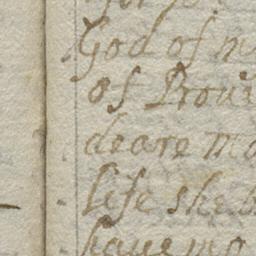 God of m
of Proui
deare mo
life she b
haue mo